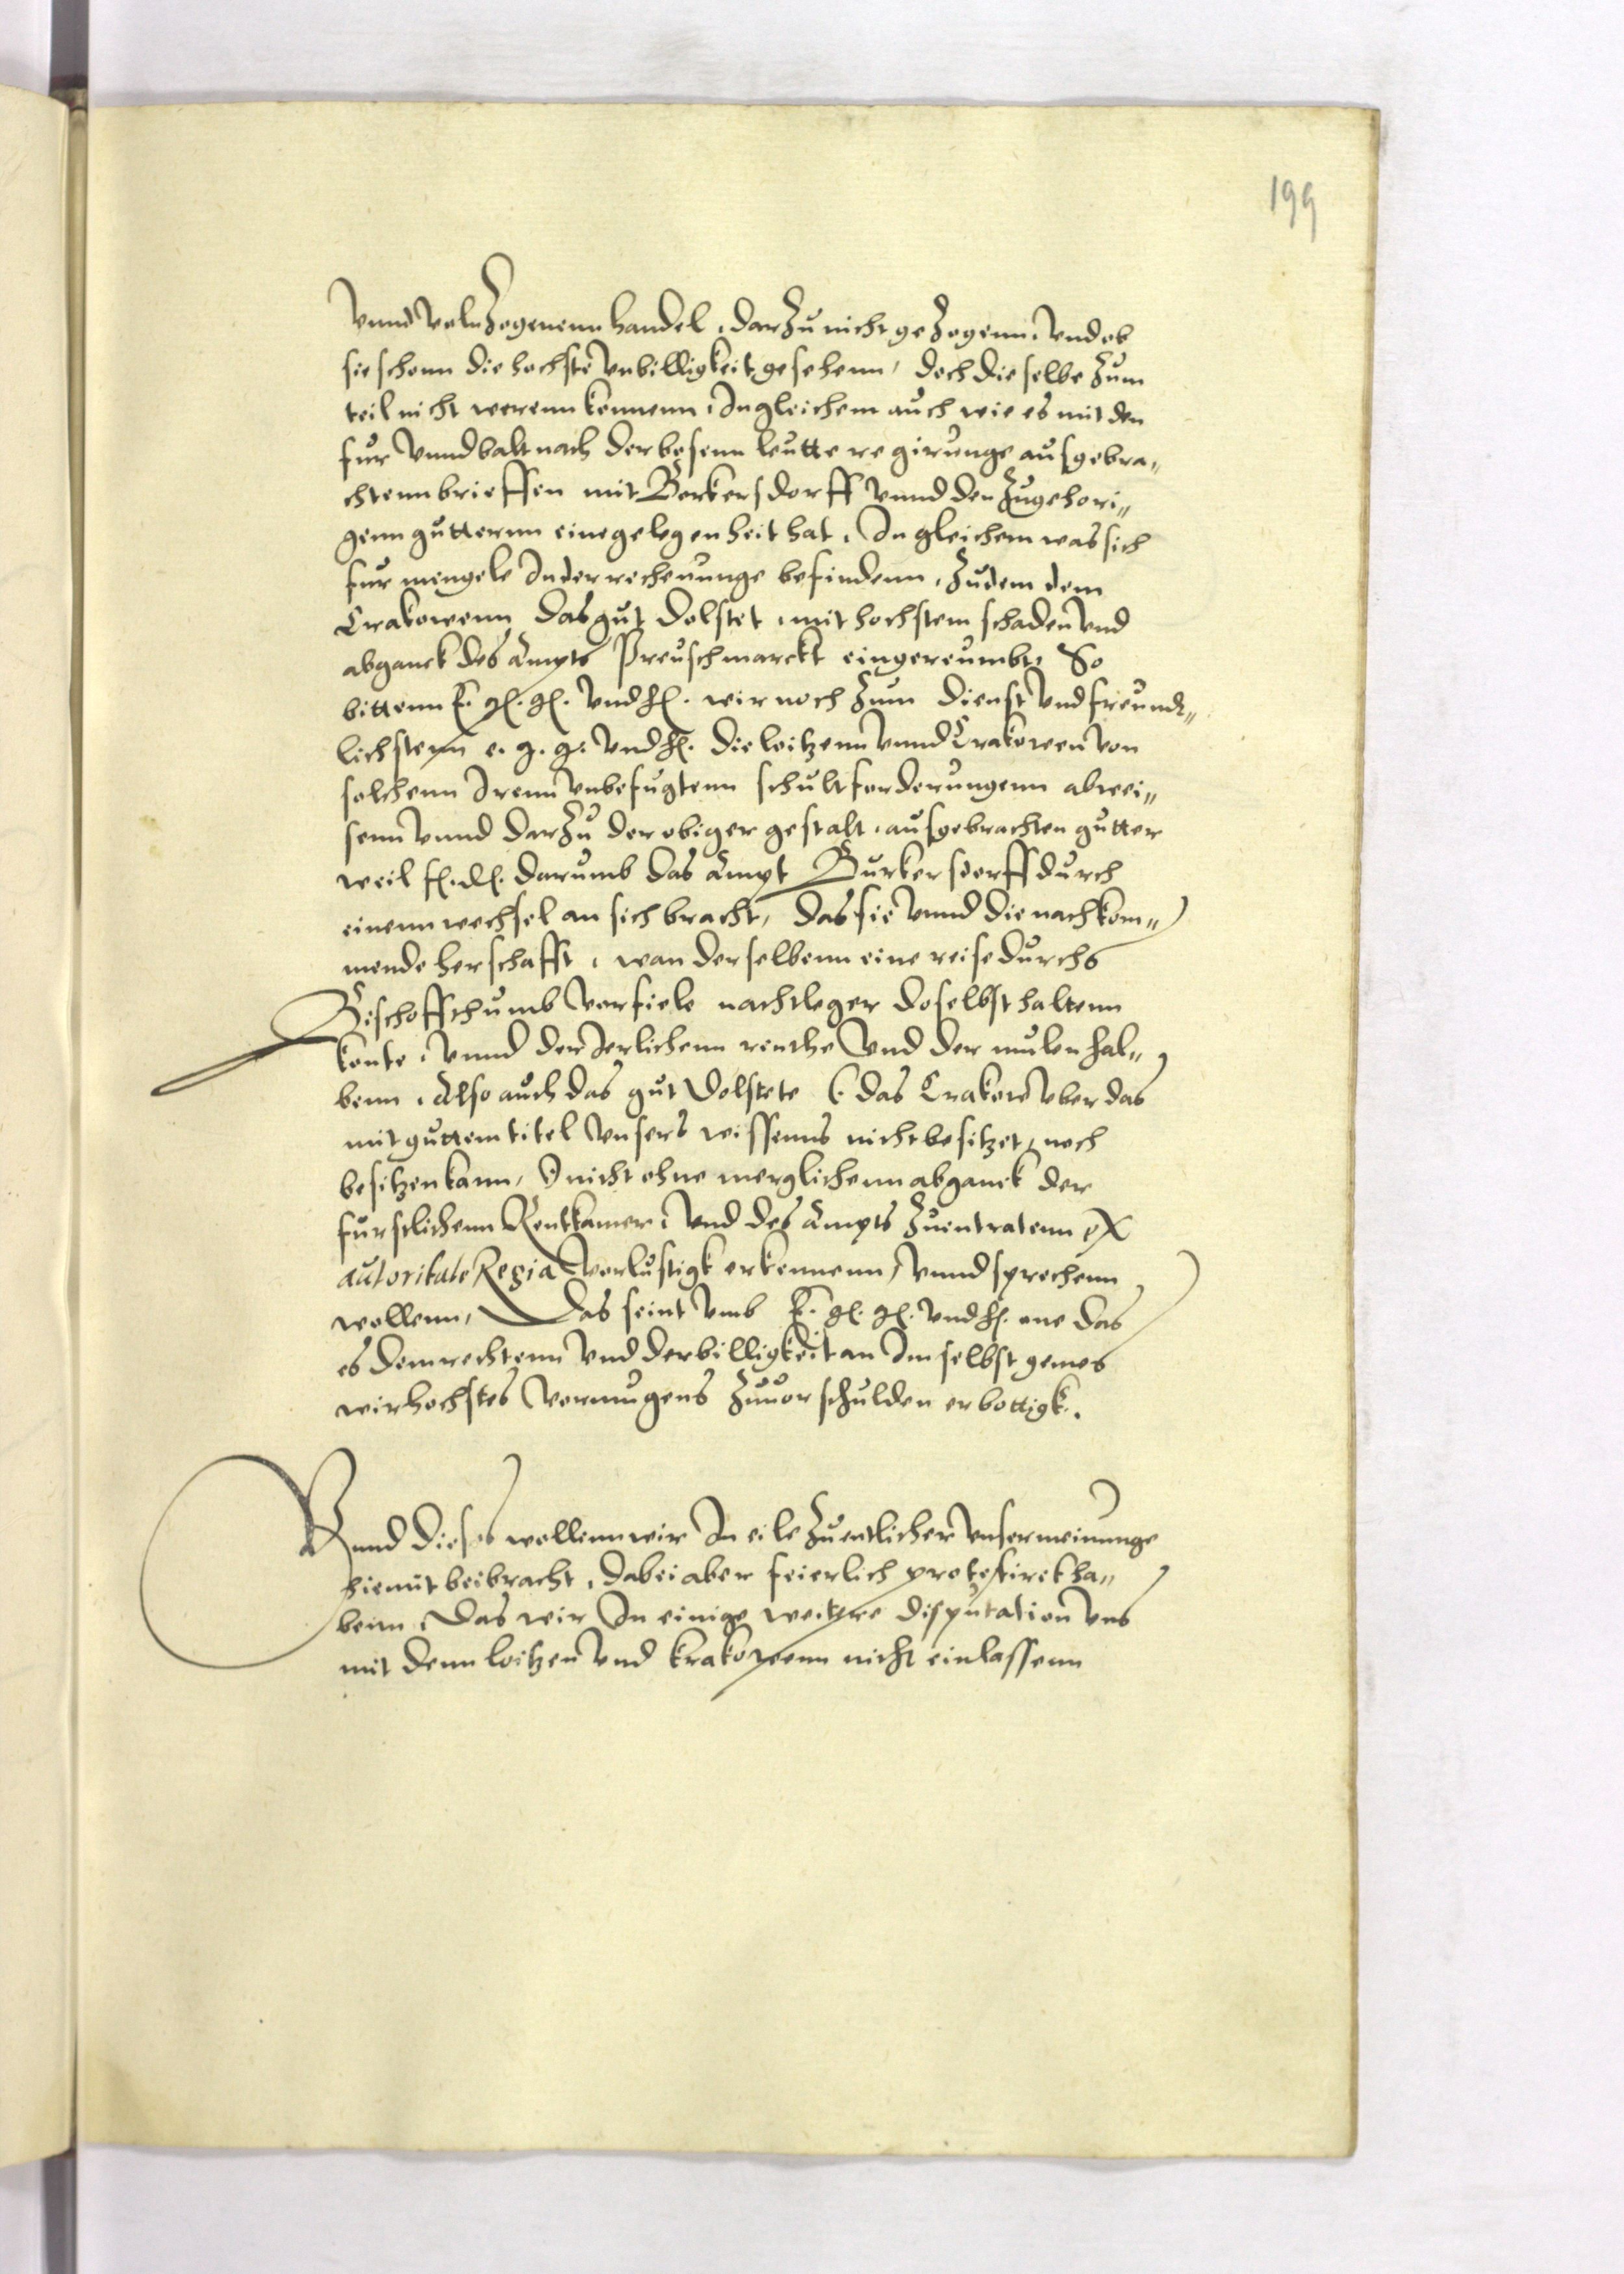 199
vnnd volnzogenenn handel, darzu nicht gezogenn, vnd ob
sie schonn die hochste vnbilligkeit gesehenn, doch dieselbe zum
teil nicht werenn konnenn, Ingleichem auch wie es mit den
fur vnnd balt nach der bosenn leutte regirunge ausgebra„
chtenn brieffen mit Borkersdorff vnnd den zugehori„
genn gutternn eine gelegenheit hat, Ingleichem was sich
fur mengele In der rechenunge befindenn, zudem dem
Crakowenn das gut Dolstet, mit hochstem schaden vnd
abganck des Ampts Preuschmarckt eingereumbt, So
bittenn E. g. g. vnd h. wir noch zum dienst vnd freundt„
lichstenn e. g. g. vnd h. die loitzenn vnnd Crakowen von
solchenn Irenn vnbefugtenn schultforderungenn abwei„
senn vnnd darzu der obiger gestalt, ausgebrachten gutter
weil f. d. darumb das Ampt Burkersdorff durch
einenn wechsel an sich bracht, das sie vnnd die nachkom„
mende herschafft, wan derselbenn eine reise durchs
Bischoffthumb vorfiele nachtleger doselbst haltenn
konte, vnnd der Jerlichenn renthe vnd der mulen hal„
benn, Also auch das gut Dolstete (das Crakow vber das
mit guttem titel vnsers wissenns nicht besitzet, noch
besitzen kann,) nicht ohne merglichenn abganck der
furstlichenn Rentkamer, vnd des Ampts zuentratenn ex
autoritate Regia vorlustigk erkennenn, vnnd sprechenn
wollenn, Das seint vmb E. g. g. vnd h. ane das
es dem rechtenn vnd der billigkeit an Im selbst gemes
wir hochstes vormugens zuuorschulden erbottigk.
Vnnd dieses wollenn wir In eile zu entlicher vnser meinunge
hiemit beibracht, dabei aber feierlich protestiret ha„
benn, Das wir In einige weitere disputation vns
mit denn loitzen vnd krakowenn nicht einlassenn